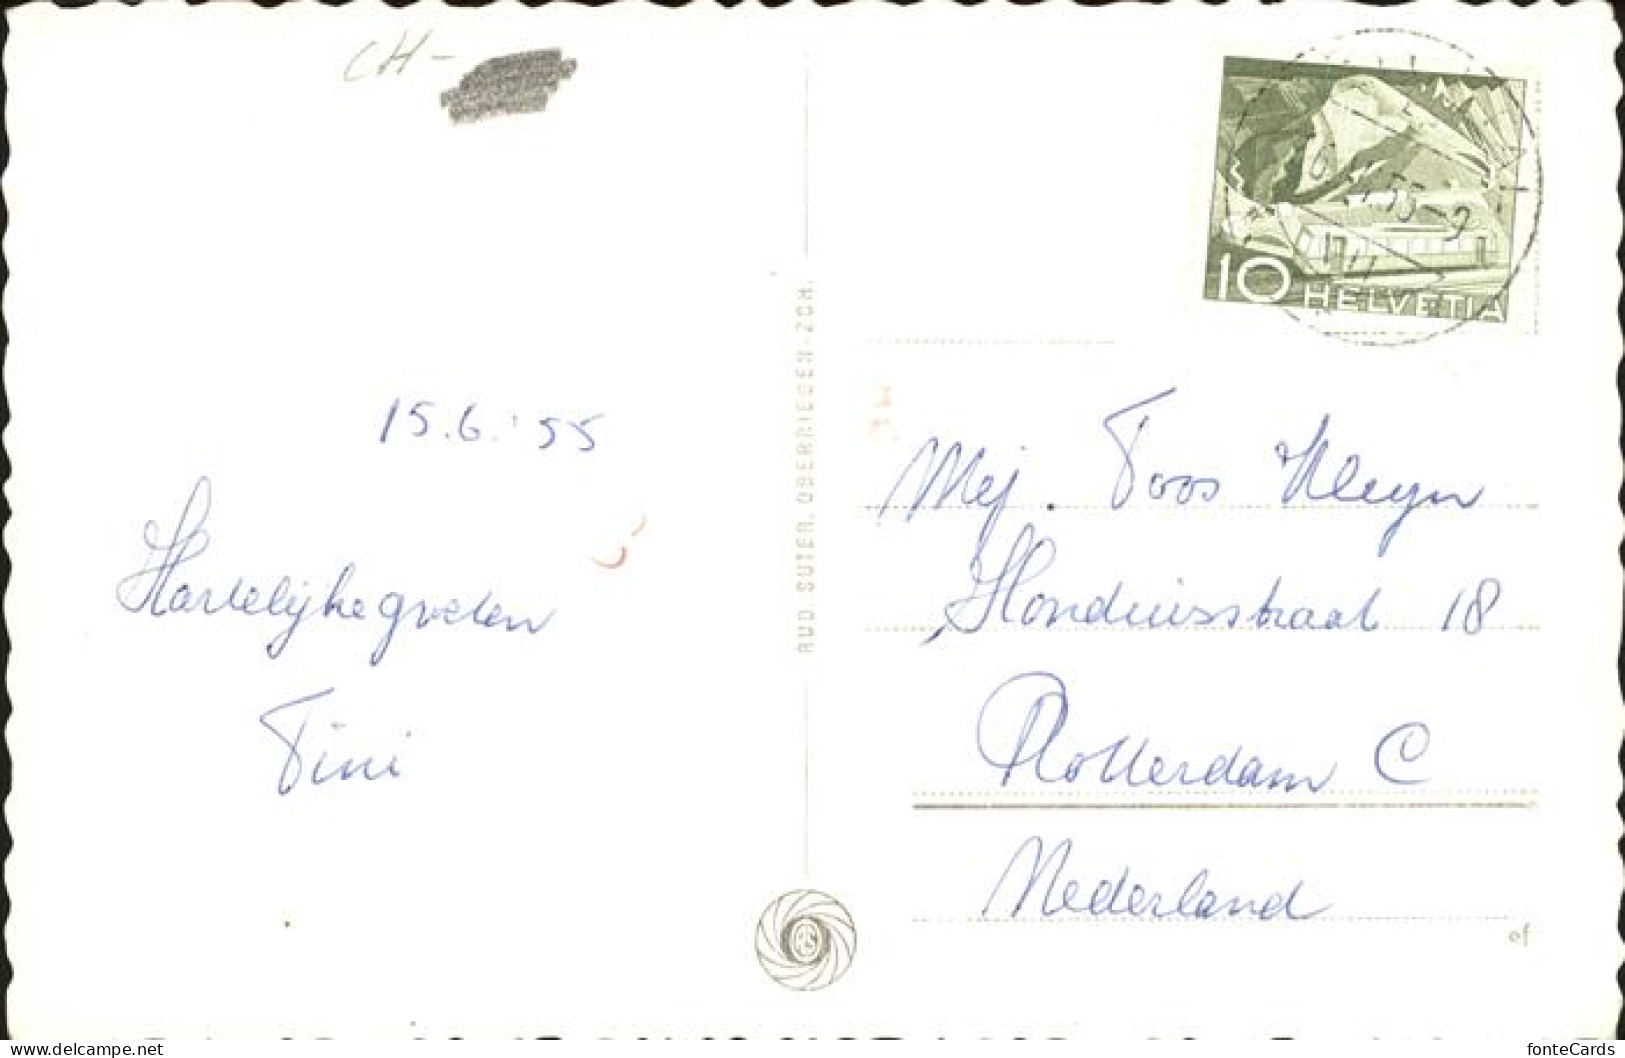 CH-
15.6.'55
Hartelijke groeten
Tini
RUD. SUTER, OBERRIEDEN-ZCH.
10 HELVETIA
55-9
Mej. Toos Kleyn
Hondiusstraat 18
Rotterdam C
Nederland
ef
fonteCards